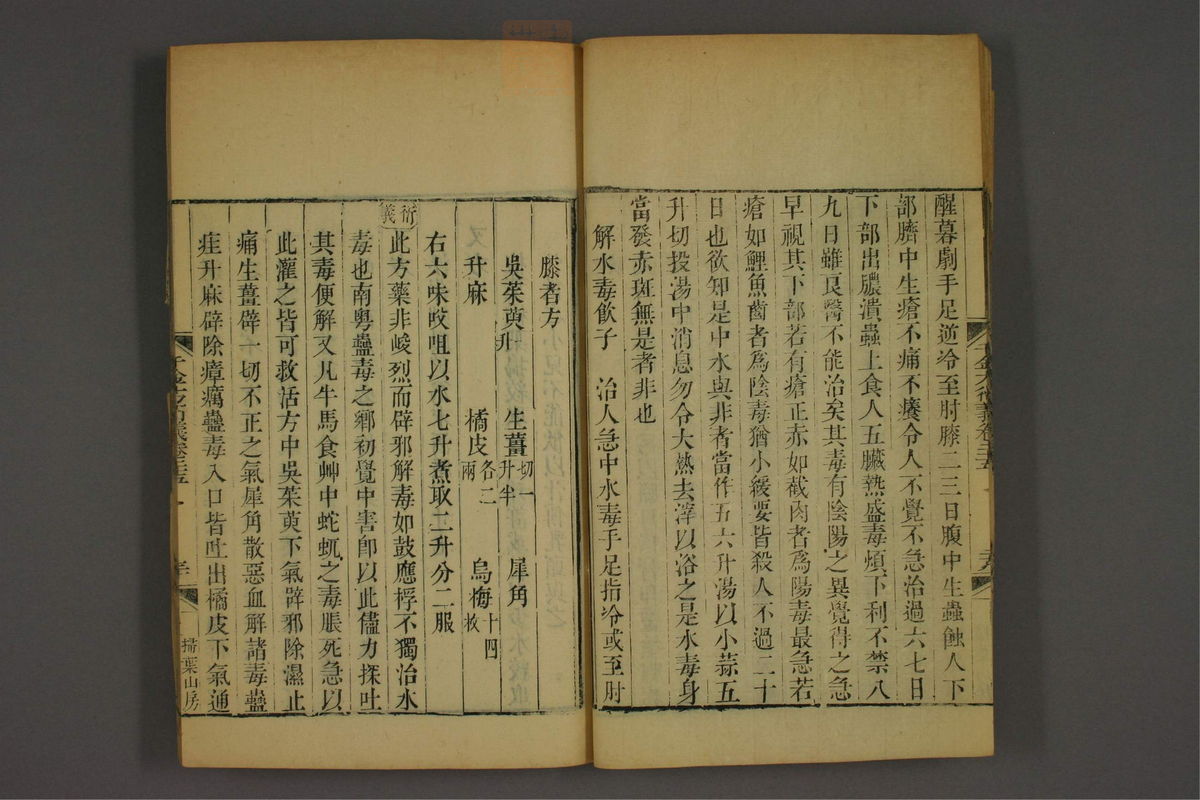 醒暮劇手足逆冷至肘膝二三日腹中生蟲蝕人下
部臍中生瘡不痛不癢令人不覺不急治過六七日
下部出膿潰蟲上食人五臟熱盛毒煩下利不禁八
九日雖良醫不能治矣其毒有陰陽之異覺得之急
早視其下部若有瘡正赤如截肉者爲陽毒最急若
瘡如鯉魚齒者爲陰毒猶小緩要皆殺人不過二十
日也欲知是中水與非者當作五六升湯以小蒜五
升切投湯中消息勿令大熱去滓以浴之是水毒身
當發赤斑無是者非也
解水毒飲子 治人急中水毒手足指冷或至肘
膝者方
吳茱萸升 生薑切一升半 犀角
升麻 橘皮各二兩 烏梅十四枚
右六味㕮咀以水七升煮取二升分二服
衍義 此方藥非峻烈而辟邪解毒如鼓應桴不獨治水
毒也南粵蠱毒之鄉初覺中害卽以此儘力探吐
其毒便解又凡牛馬食艸中蛇虺之毒脹死急以
此灌之皆可救活方中吳茱萸下氣辟邪除濕止
痛生薑辟一切不正之氣犀角散惡血解諸毒蠱
疰升麻辟除瘴癘蠱毒入口皆吐出橘皮下氣通
掃葉山房